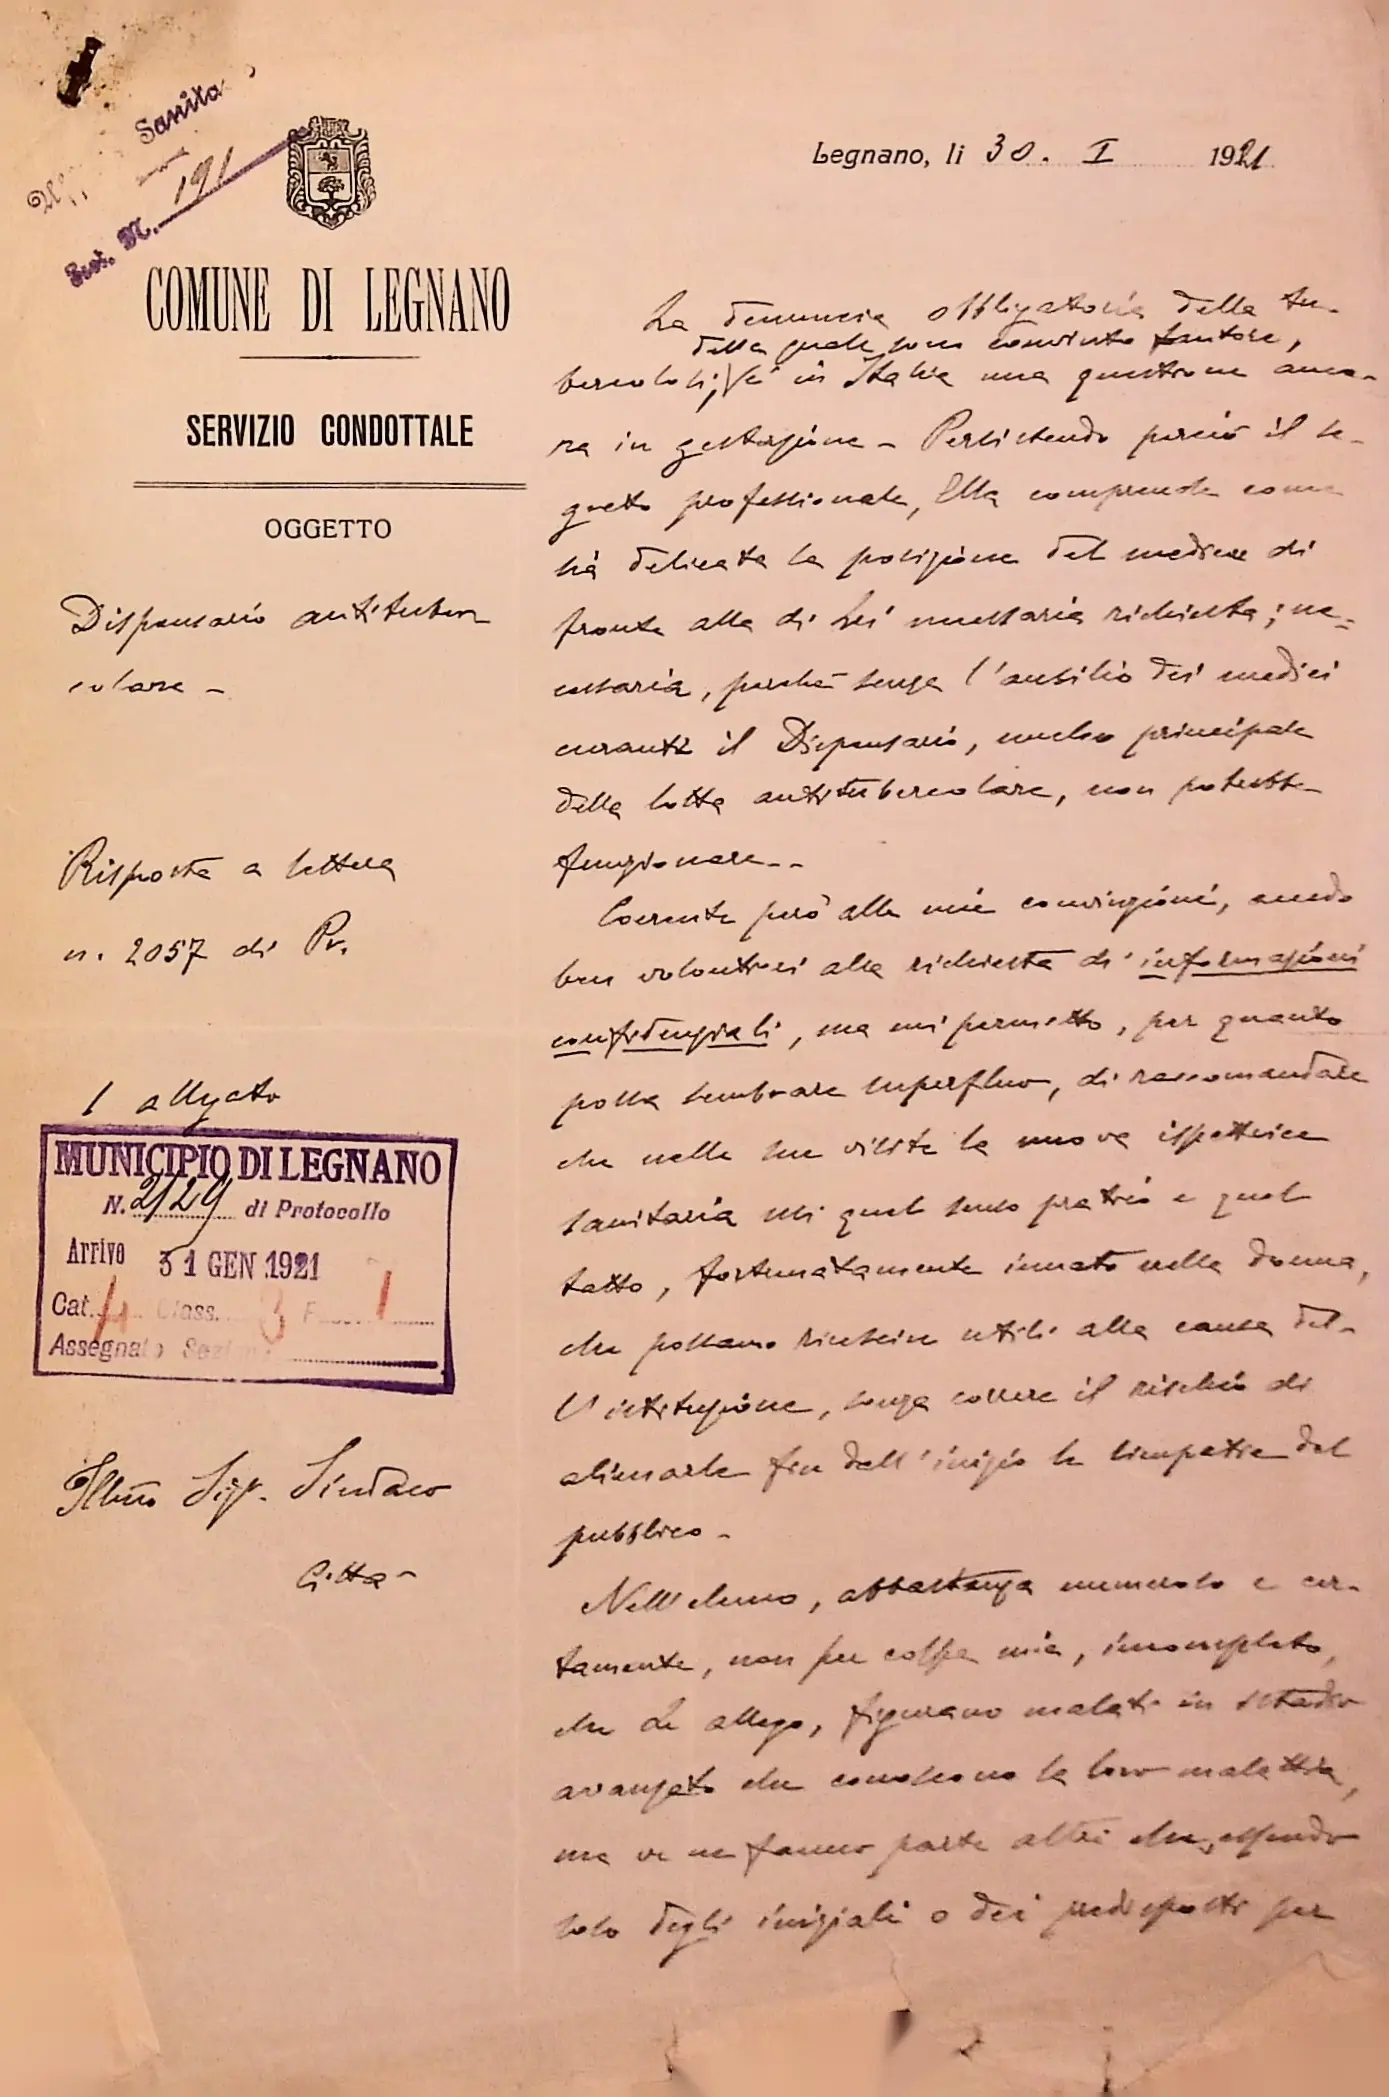 Sanita
191
Legnano, li 30. I 1921
COMUNE DI LEGNANO
SERVIZIO CONDOTTALE
OGGETTO
Dispensario antituber
colare -
Risposta a lettera
n. 2057 di Pr.
1 allegato
MUNICIPIO DI LEGNANO
N. 2129 di Protocollo
Arrivo 31 GEN 1921
Cat. 4 Class. 3 F. 1
Assegnato Sezione
Illmo Sig. Sindaco
Città -
La denuncia obbligatoria della tu-
della quale sono convinto fautore,
bercolosi, è in Italia una questione anco-
ra in gestazione - Persistendo perciò il se-
greto professionale, Ella comprende come
sia delicata la posizione del medico di
fronte alla di Lei necessaria richiesta; ne-
cessaria, perchè senza l'ausilio dei medici
curanti il Dispensario, nucleo principale
della lotta antitubercolare, non potrebbe
funzionare. -
Coerente però alle mie convinzioni, accedo
ben volentieri alla richiesta di informazioni
confidenziali, ma mi permetto, per quanto
possa sembrare superfluo, di raccomandare
che nelle sue visite la nuova ispettrice
sanitaria usi quel senso pratico e quel
tatto, fortunatamente innato nella donna,
che possano riuscire utili alla causa del-
l'istituzione, senza correre il rischio di
alienarle fin dall'inizio le simpatie del
pubblico -
Nell'elenco, abbastanza numeroso e cer-
tamente, non per colpa mia, incompleto,
che Le allego, figurano malati in istadio
avanzato che conoscono la loro malattia,
ma ve ne fanno parte altri che, essendo
solo degli iniziali o dei predisposti per